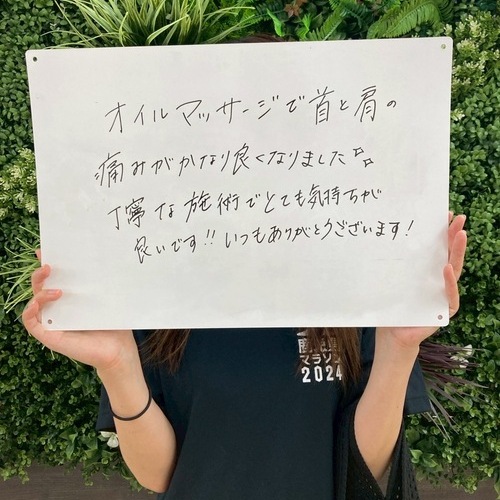 オイルマッサージで首と肩の
痛みがかなり良くなりました
丁寧な施術でとても気持ちが
良いです!! いつもありがとうございます!
マラソン
2024